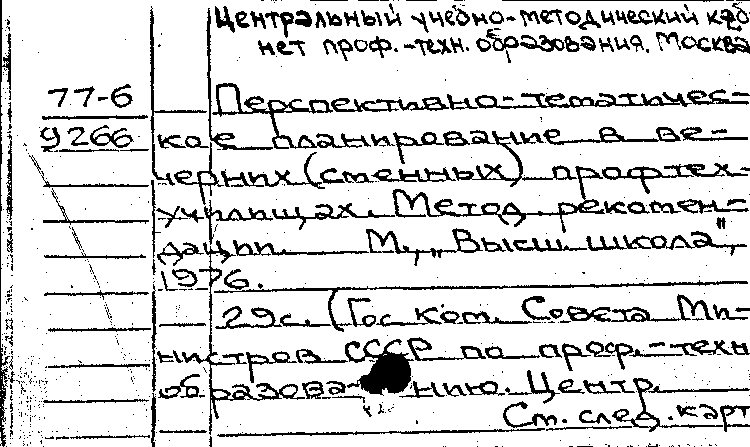 Центральный учебно-методический каб
нет проф.-техн. образования. Москва
77-6
9266
Перспективно-тематичес-
кое планирование в ве-
черних (сменных) профтех-
училищах. Метод. рекомен-
дации. М., „Высш. школа",
1976.
29с. (Гос ком. Совета Ми-
нистров СССР по проф.-техн
образованию. Центр.
См. след. карт